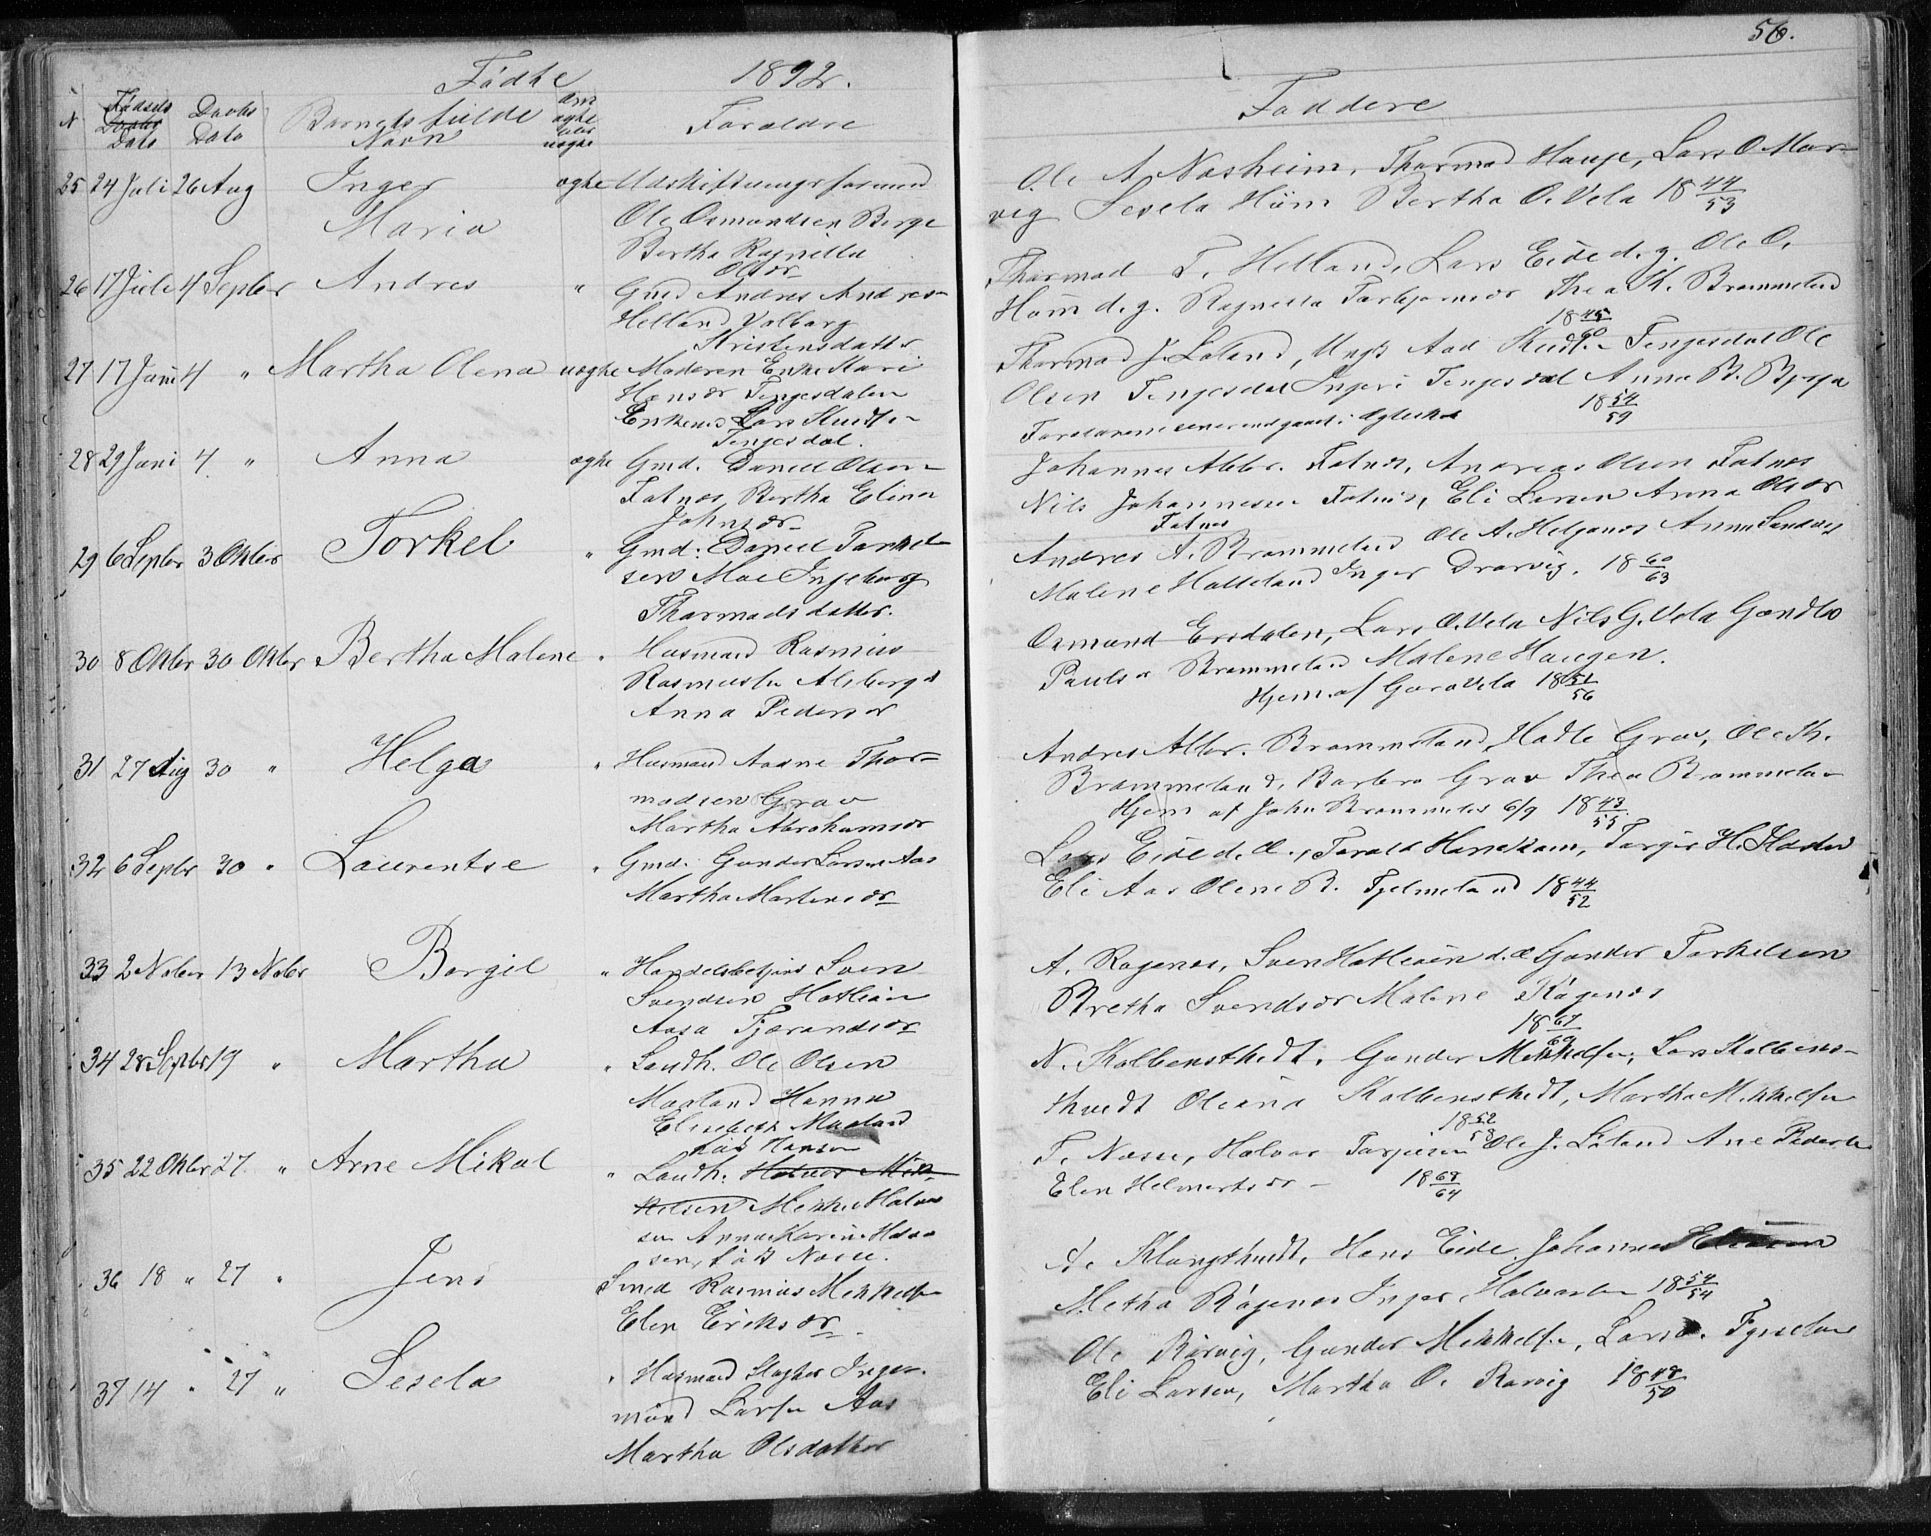 56.
Fødte 1892.
N Fødsels Dato Daabs Dato Barnets fulde Navn Om ægte eller uægte Forældre
25 24 Juli 26 Aug Inger Maria ægte Udskiftningsformand
Ole Osmundsen Berge
Bertha Ragnilla
Olsdr
26 17 Juli 4 Septbr Andres " Gmd Andres Andres-
Helland Valborg
Kristensdatter
27 17 Juni 4 " Martha Olena uægte Moderen Enke Kari
Hansdr Tengesdalen
Enkemd Lars Knudts-
Tengesdal.
28 29 Juni 4 " Anna ægte Gmd. Daniel Olsen
Fatnes, Bertha Elina
Johnsdr
29 6 Septbr 3 Oktbr Torkel " Gmd: Daniel Torkel-
sen Moe Ingeborg
Thormodsdatter.
30 8 Oktbr 30 Oktbr Bertha Malene " Husmand Rasmus
Rasmusen Alsberg
Anna Pedersdr
31 27 Aug 30 " Helga " Husmand Aadne Thor-
modsen Grav
Martha Abrahamsdr
32 6 Septbr 30 " Laurentse " Gmd. Gunder Larsen Aas
Martha Mortensdr
33 2 Nobr 13 Nobr Borgil " Handelsbetjent Sven
Svendsen Hatleøen
Aasa Tjerandsdr
34 28 Septbr 19 " Martha " Landh. Ole Olsen
Maaland Hanna
Elisabeth Maaland
født Hansen
35 22 Oktbr 27 " Arne Mikal " Landh. Halvor Mik-
kelsen Mikkel Halvor
sen Anna Karine Hans
sen, født Næsse.
36 18 " 27 " Jens Smed Rasmus Mikkels-
Elen Eriksdr
37 14 " 27 " Sesela " Husmand Slagter Inger-
mund Larsen Aas
Martha Olsdatter
Faddere
Ole A. Næsheim, Thormod Hauge, Lars O. Mar-
vig Sesela Høim Bertha O. Vela 18 44/53
Thormod T. Helland, Lars Eide d. y. Ole O.
Høim d. y. Ragnilla Torbjørnsdr Thea K. Brommeland
18 45/60
Thormod J. Løland, Ungk Aad Knuts- Tengesdal Ole
Olsen Tengesdal Ingeri Tengesdal Anna B. Bygja
Forældrene senere indgaaet i Ægteskab 18 54/59
Johannes Albr. Fatnes, Andreas Olsen Fatnes
Nils Johannessen Fatnes, Eli Larsen Anna Olsdr
Fatnes
Andres A. Brommeland Ole A. Helganes Anna Sandvig
Malene Halleland Inger Drarvig. 18 60/63
Osmund Ersdalen, Lars O. Vela Nils G. Vela Gondla
Paulsdr Brommeland Malene Haugen.
Hjem. af Goro Vela 18 51/56
Andres Albr. Brommeland, Hadle Grav, Ole Th.
Brommeland, Barbro Grav Thea Brommelan-
Hjem af John Brommelan 6/9 18 48/55
Lars Eide d. æ., Torald Handkam, Torger H.
Eli Aas Olene B. Tjelmeland 18 44/52
A. Røgenes, Sven Hatleøen d. æ Gunder Torkelsen
Bretha Svendsdr Malene Røgenes
18 67/69
N. Kolbensthvedt, Gunder Mikkelse, Lars Kolbens-
thvedt Oleana Kolbensthvedt, Martha Mikkelsen
18 52/58
T. Næsse, Halvor Torgersen Ole J. Løland Ane Pederdr
Elen Helmertsdr - 18 68/64
A. Klungthvedt, Hans Eide, Johannes Eliasen
Metha Røgenes Inger Halvorsen 18 54/54
Ole Rørvig, Gunder Mikkelse, Lars
Eli Larsen, Martha O. Rørvig 18 48/50